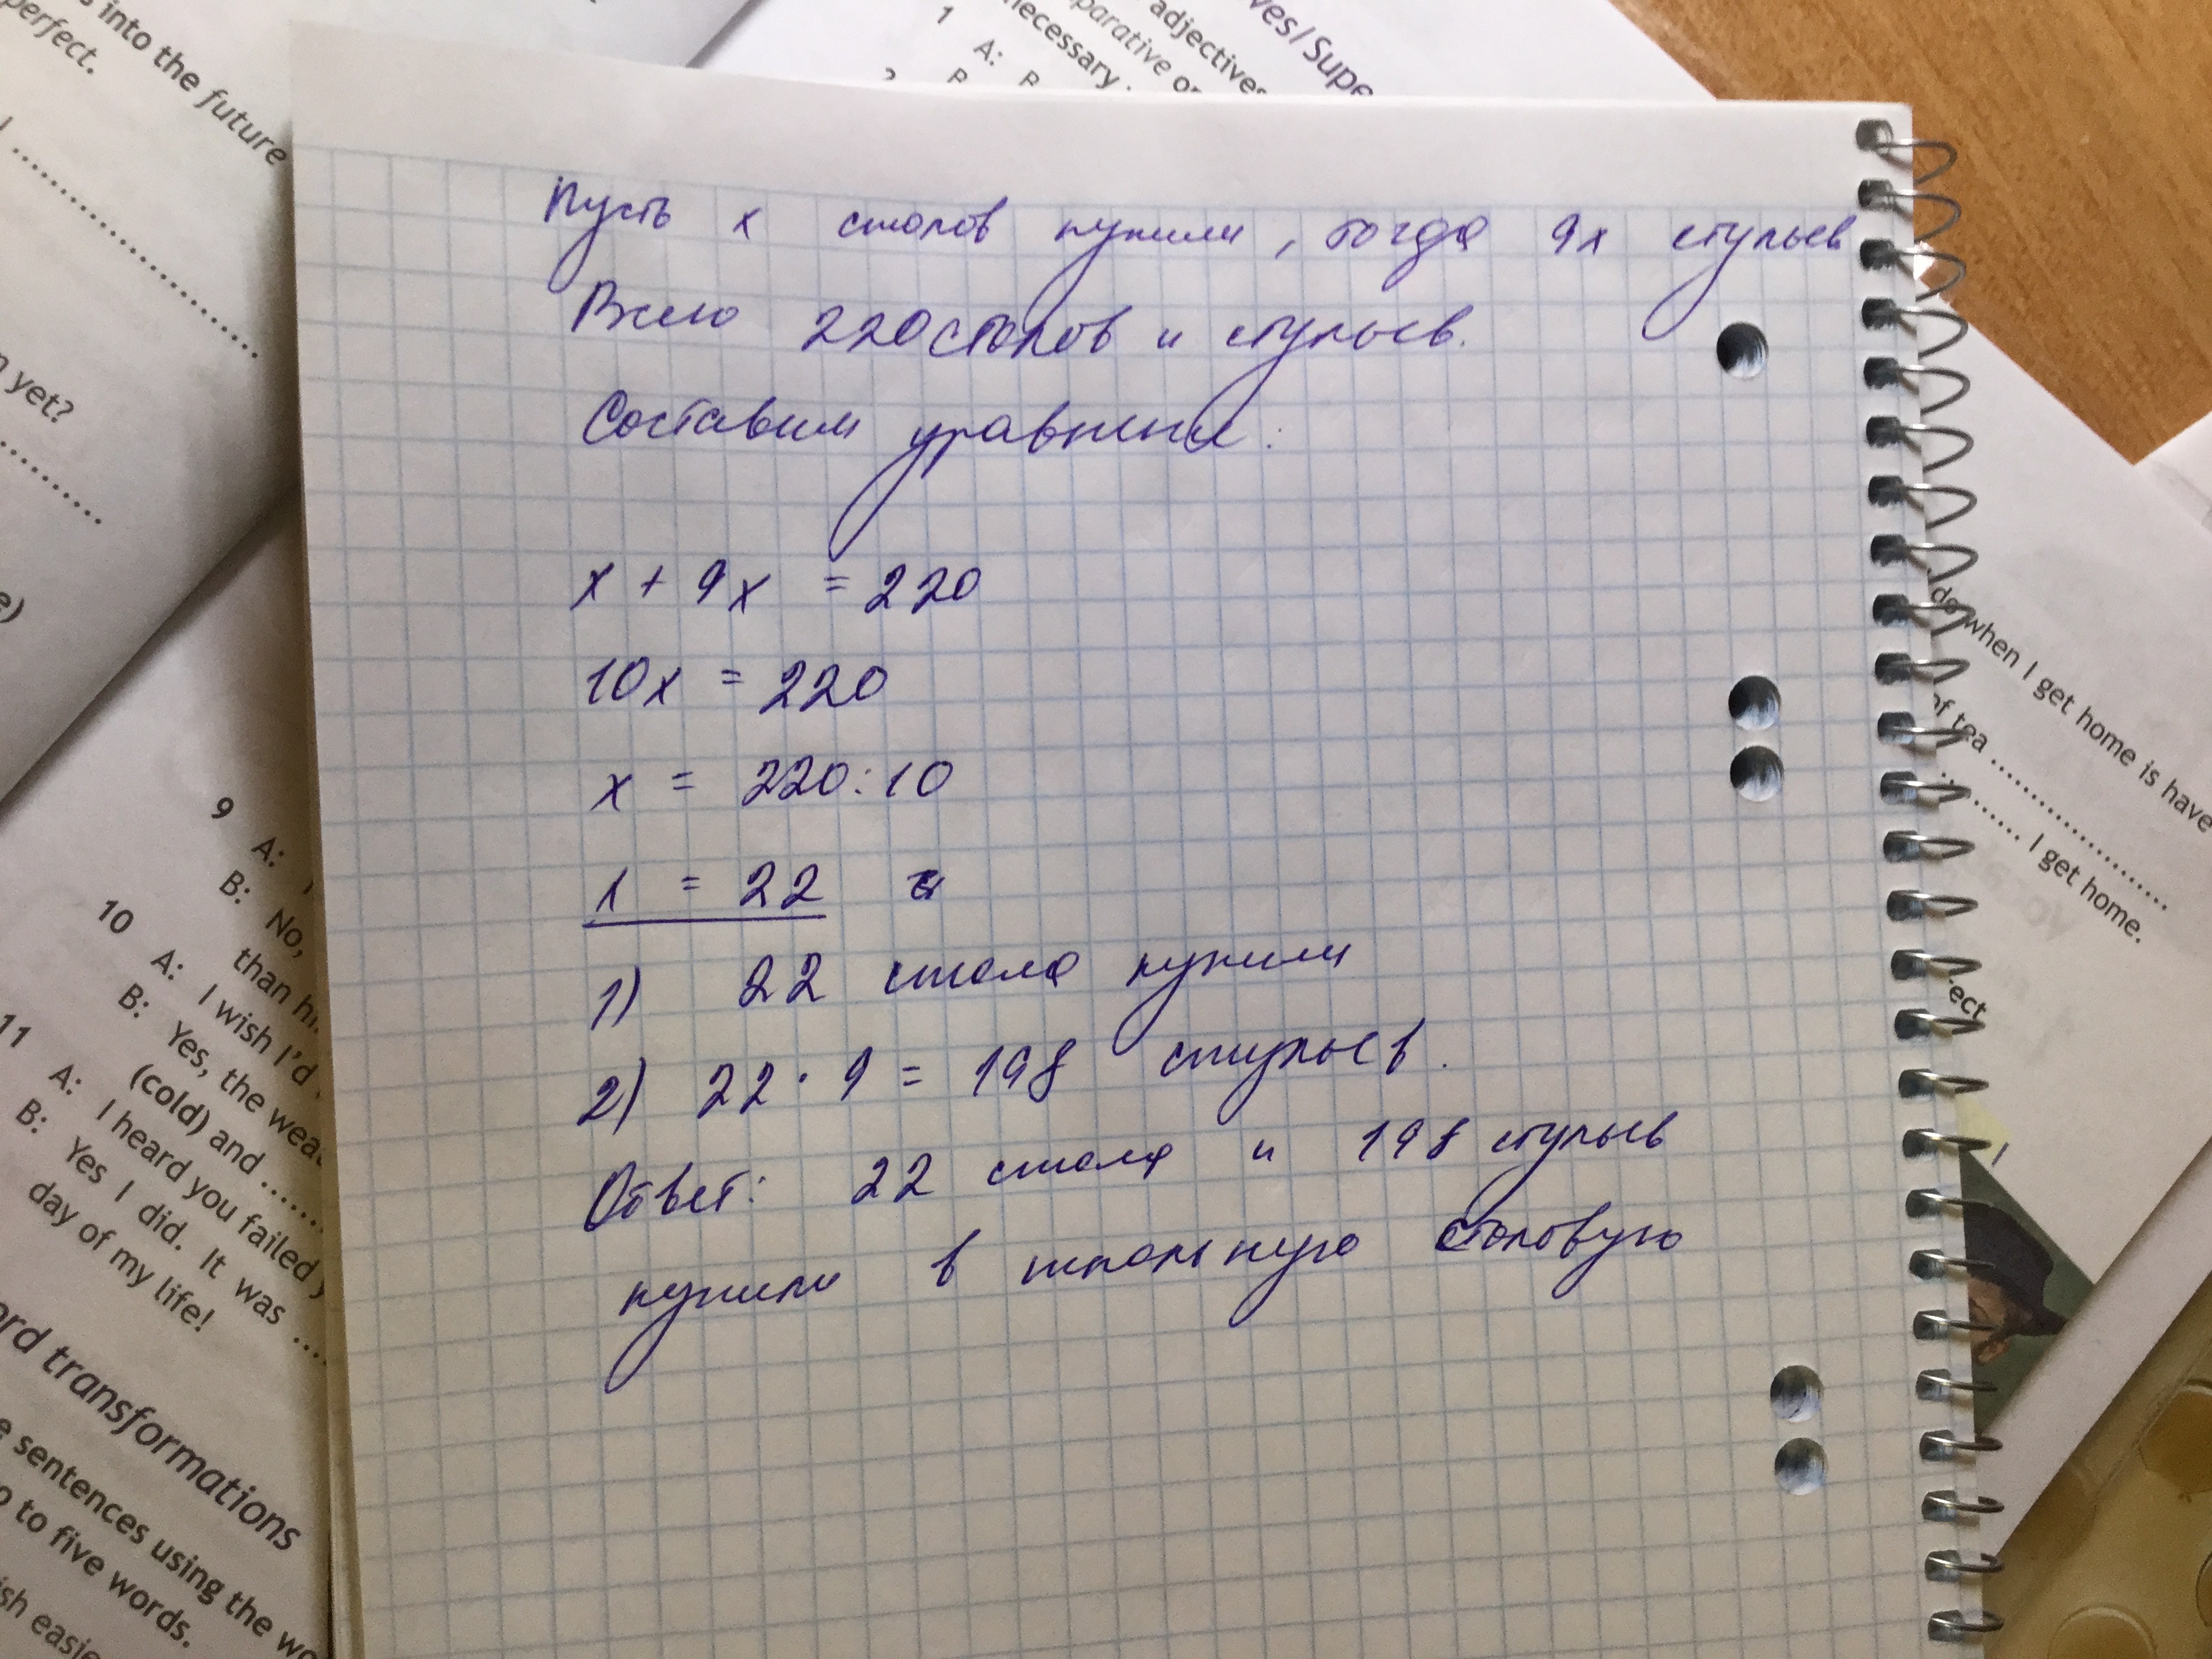 s into the future
perfect.
n yet?
e)
9 A: I
B: No,
than hi
10 A: I wish I'd
B: Yes, the weat
(cold) and ........
11 A: I heard you failed y
B: Yes I did. It was ....
day of my life!
ord transformations
e sentences using the wo
p to five words.
ish easie
ves / Supe
adjectives
parative or
necessary.
1 A: B
Пусть x столов купили, тогда 9x стульев
Всего 220 столов и стульев.
Составим уравнение:
x + 9x = 220
10x = 220
x = 220:10
x = 22
1) 22 стола купили
2) 22 · 9 = 198 стульев.
Ответ: 22 стола и 198 стульев
купили в школьную столовую
do when I get home is have
of tea ....................
.......... I get home.
rect